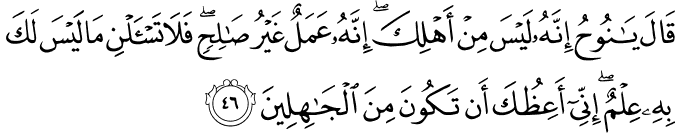 قَالَ يَـٰنُوحُ إِنَّهُۥ لَيْسَ مِنْ أَهْلِكَ ۖ إِنَّهُۥ عَمَلٌ غَيْرُ صَـٰلِحٍ ۖ فَلَا تَسْـَٔلْنِ مَا لَيْسَ لَكَ
بِهِۦ عِلْمٌ ۖ إِنِّىٓ أَعِظُكَ أَن تَكُونَ مِنَ ٱلْجَـٰهِلِينَ ٤٦